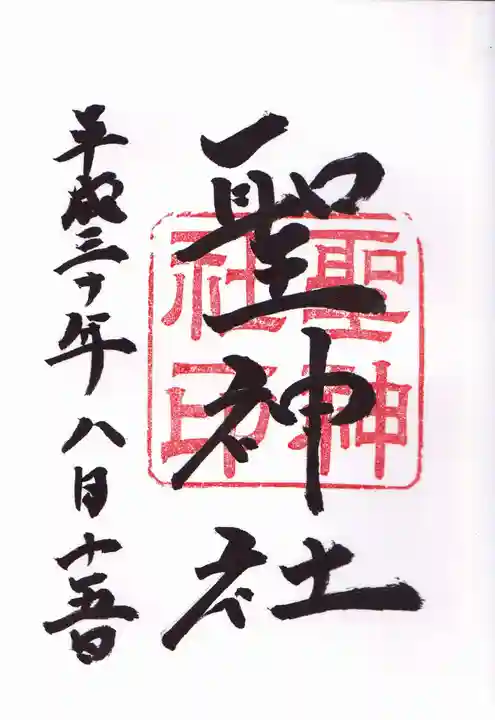 聖神社
聖神
社印
平成三十年八月十五日